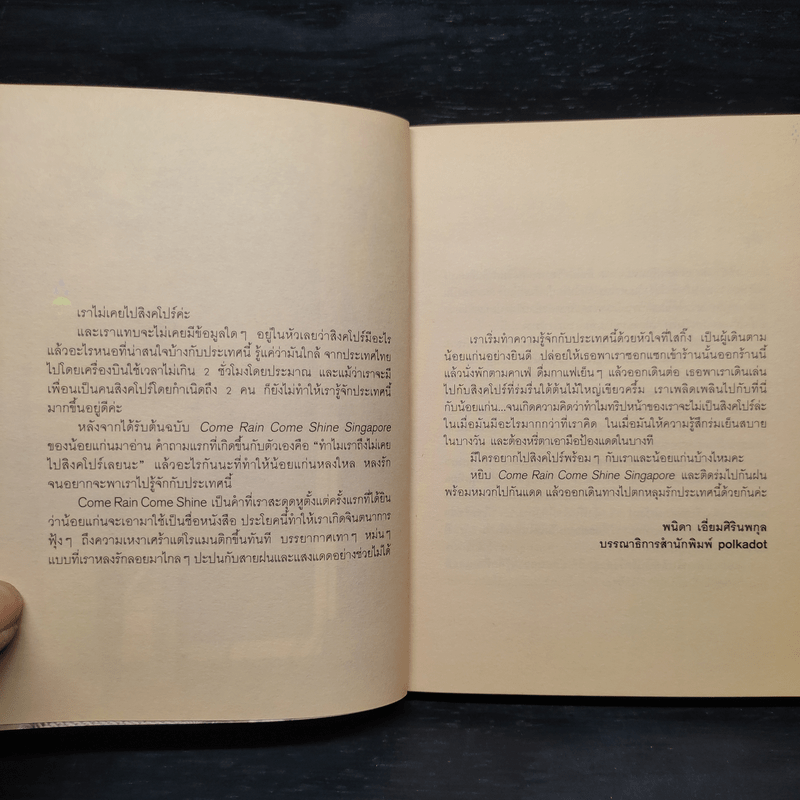 เราไม่เคยไปสิงคโปร์ค่ะ
และเราแทบจะไม่เคยมีข้อมูลใดๆ อยู่ในหัวเลยว่าสิงคโปร์มีอะไร
แล้วอะไรหนอที่น่าสนใจบ้างกับประเทศนี้ รู้แค่ว่ามันใกล้ จากประเทศไทย
ไปโดยเครื่องบินใช้เวลาไม่เกิน 2 ชั่วโมงโดยประมาณ และแม้ว่าเราจะมี
เพื่อนเป็นคนสิงคโปร์โดยกำเนิดถึง 2 คน ก็ยังไม่ทำให้เรารู้จักประเทศนี้
มากขึ้นอยู่ดีค่ะ
หลังจากได้รับต้นฉบับ Come Rain Come Shine Singapore
ของน้อยแก่นมาอ่าน คำถามแรกที่เกิดขึ้นกับตัวเองคือ “ทำไมเราถึงไม่เคย
ไปสิงคโปร์เลยนะ” แล้วอะไรกันนะที่ทำให้น้อยแก่นหลงใหล หลงรัก
จนอยากจะพาเราไปรู้จักกับประเทศนี้
Come Rain Come Shine เป็นคำที่เราสะดุดหูตั้งแต่ครั้งแรกที่ได้ยิน
ว่าน้อยแก่นจะเอามาใช้เป็นชื่อหนังสือ ประโยคนี้ทำให้เราเกิดจินตนาการ
ฟุ้งๆ ถึงความเหงาเศร้าแต่โรแมนติกขึ้นทันที บรรยากาศเทาๆ หม่นๆ
แบบที่เราหลงรักลอยมาไกลๆ ปะปนกับสายฝนและแสงแดดอย่างช่วยไม่ได้
เราเริ่มทำความรู้จักกับประเทศนี้ด้วยหัวใจที่ใสกิ๊ง เป็นผู้เดินตาม
น้อยแก่นอย่างยินดี ปล่อยให้เธอพาเราซอกแซกเข้าร้านนั้นออกร้านนี้
แล้วนั่งพักตามคาเฟ่ ดื่มกาแฟเย็นๆ แล้วออกเดินต่อ เธอพาเราเดินเล่น
ไปกับสิงคโปร์ที่ร่มรื่นใต้ต้นไม้ใหญ่เขียวครึ้ม เราเพลิดเพลินไปกับที่นี่
กับน้อยแก่น...จนเกิดความคิดว่าทำไมทริปหน้าของเราจะไม่เป็นสิงคโปร์ล่ะ
ในเมื่อมันมีอะไรมากกว่าที่เราคิด ในเมื่อมันให้ความรู้สึกร่มเย็นสบาย
ในบางวัน และต้องหรี่ตาเอามือป้องแดดในบางที
มีใครอยากไปสิงคโปร์พร้อมๆ กับเราและน้อยแก่นบ้างไหมคะ
หยิบ Come Rain Come Shine Singapore และติดร่มไปกันฝน
พร้อมหมวกไปกันแดด แล้วออกเดินทางไปตกหลุมรักประเทศนี้ด้วยกันค่ะ
พนิตา เอี่ยมศิรินพกุล
บรรณาธิการสำนักพิมพ์ polkadot